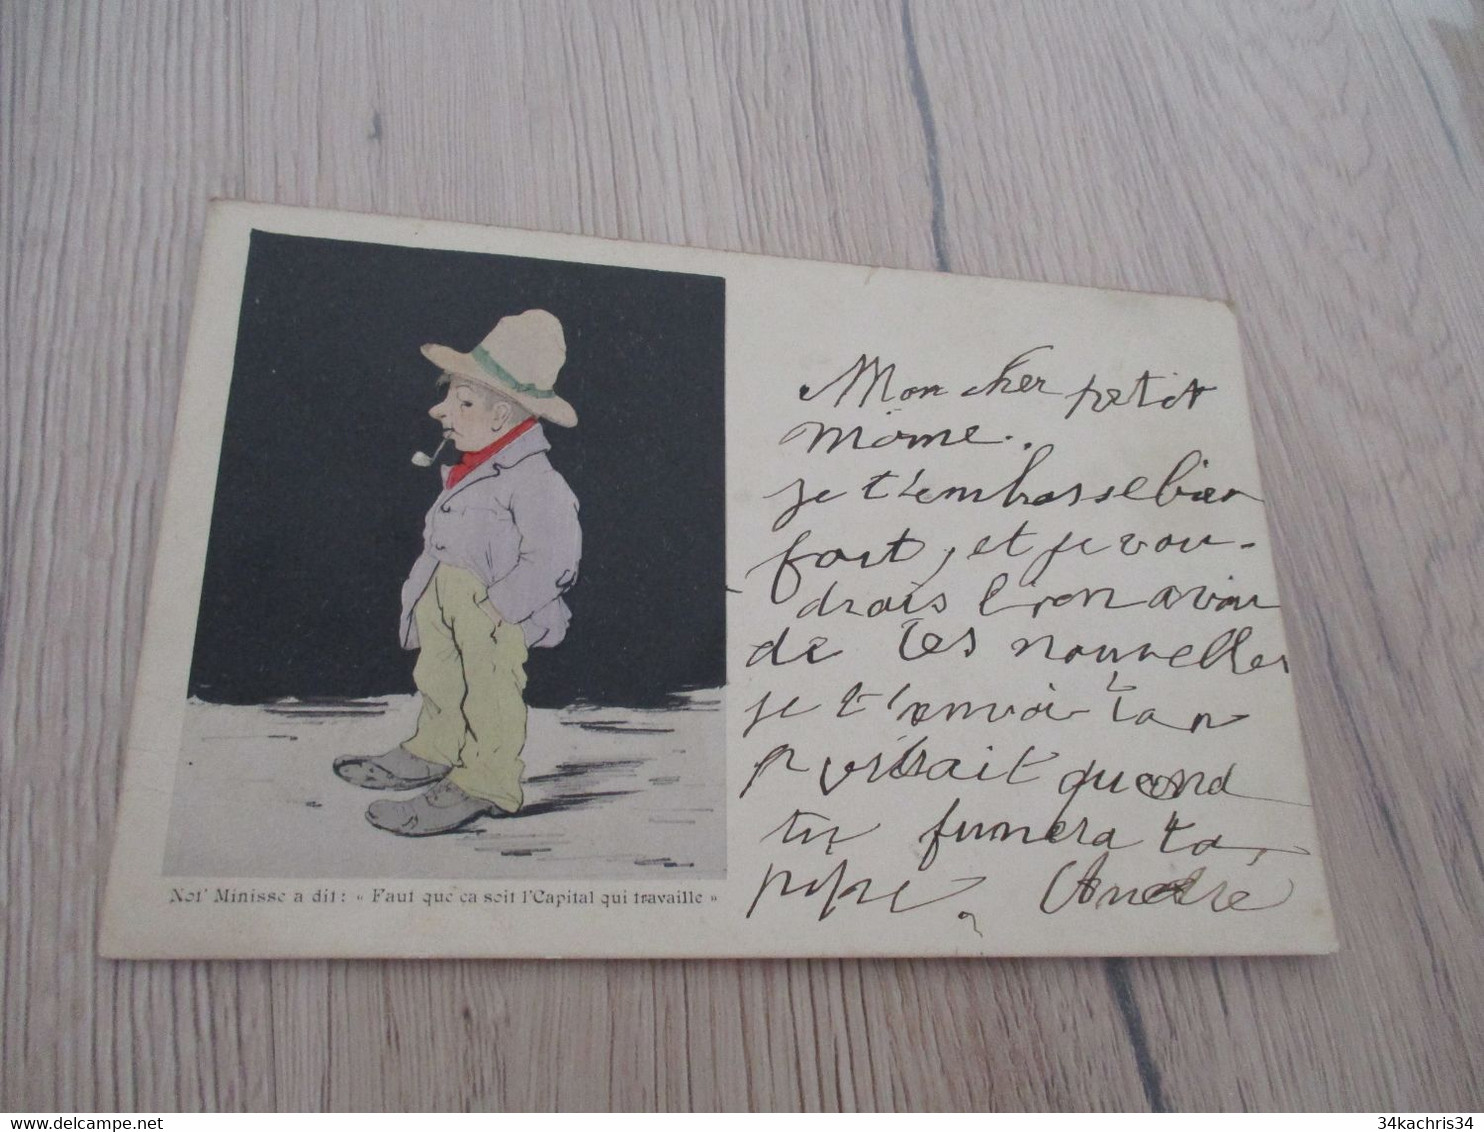 Mon cher petit
môme.
je t'embrasse bien
fort, et je vou-
drais bien avoir
de tes nouvelles
je t'envoie ton
portrait quand
tu fumera ta
pipe. André
Not' Minisse a dit : « Faut que ça soit l'Capital qui travaille »
34kachris34
delcampe.net